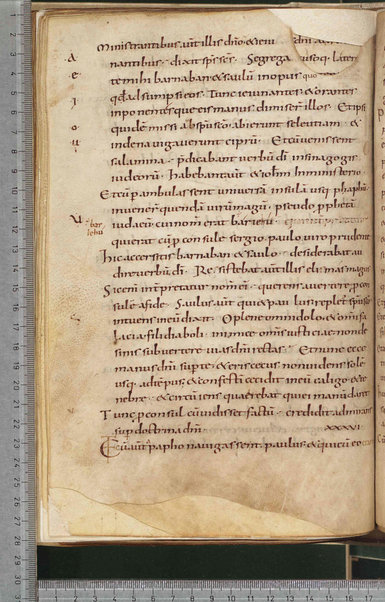 Ministrantibus aut illis dño & ieiu
nantibus · dixit sps scs · Segrega
te mihi barnaban & saulū in opus quo
qđ adsumpsi eos · Tunc ieiunantes & orantes
inponentesque eis manus dimiser illos · Et ipsi
quidē missi ab spū sco · abierunt seleutiam · &
inde nauigauerunt ciprū · Et cū uenissent
salamina · predicabant uerbū dī in sinagogis
iudeorū · habebant aut & iohm in ministerio ·
Et cū perambulassent uniuersā insulā usq; paphū
inuener quendā uirū magū · pseudo pphetā
iudaeū cui nomen erat barieu · qui erat
cū pconsule sergio paulo uiro prudente
Hic accersitis barnaban & saulo · desiderabat au
dire uerbū dī · Resistebat aut illis elimas magus
Sic enī interpretatur nom ei · querens auertere pcon
sule a fide · Saulus aut qui & paulus replet spū sco
intuens in eū dixit · O plene omni dolo & omi fa
lacia fili diaboli · inimice omis iusticiae non de
sinis subuertere uias dnī rectas · Et nunc ecce
manus dnī sup te & eris cecus non uidens solē
usq; ad tēp's & confesti cecidit in eū caligo & te
nebre · & circuiens querebat qui ei manū daret
Tunc pconsul cū uidisset factū · credidit admirans
sup doctrina dnī · XXXVI
Et cū aut papho nauigassent paulus & qui cū eo
A
e
I
o
u
V
bar
iehu